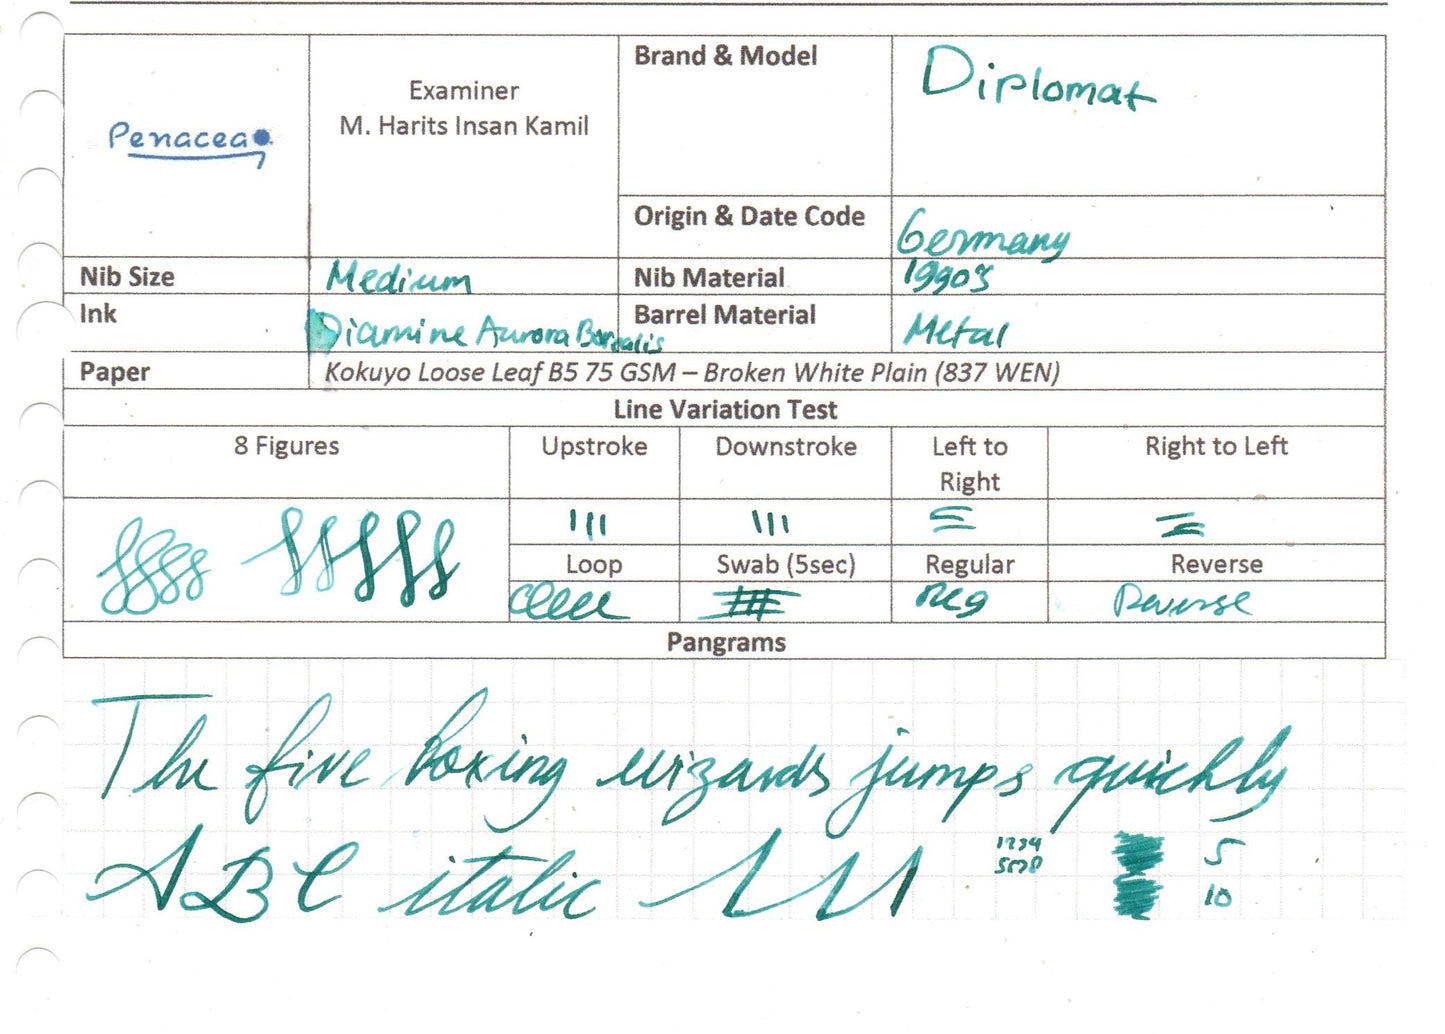 Penacea
Examiner
M. Harits Insan Kamil
Brand & Model
Diplomat
Origin & Date Code
Germany
Nib Size
Medium
Nib Material
1990s
Ink
Diamine Aurora Borealis
Barrel Material
Metal
Paper
Kokuyo Loose Leaf B5 75 GSM – Broken White Plain (837 WEN)
Line Variation Test
8 Figures
Upstroke
Downstroke
Left to
Right
Right to Left
Loop
Swab (5sec)
Regular
Reverse
Reg
Reverse
Pangrams
The five boxing wizards jumps quickly
ABC italic
1234
5678
5
10